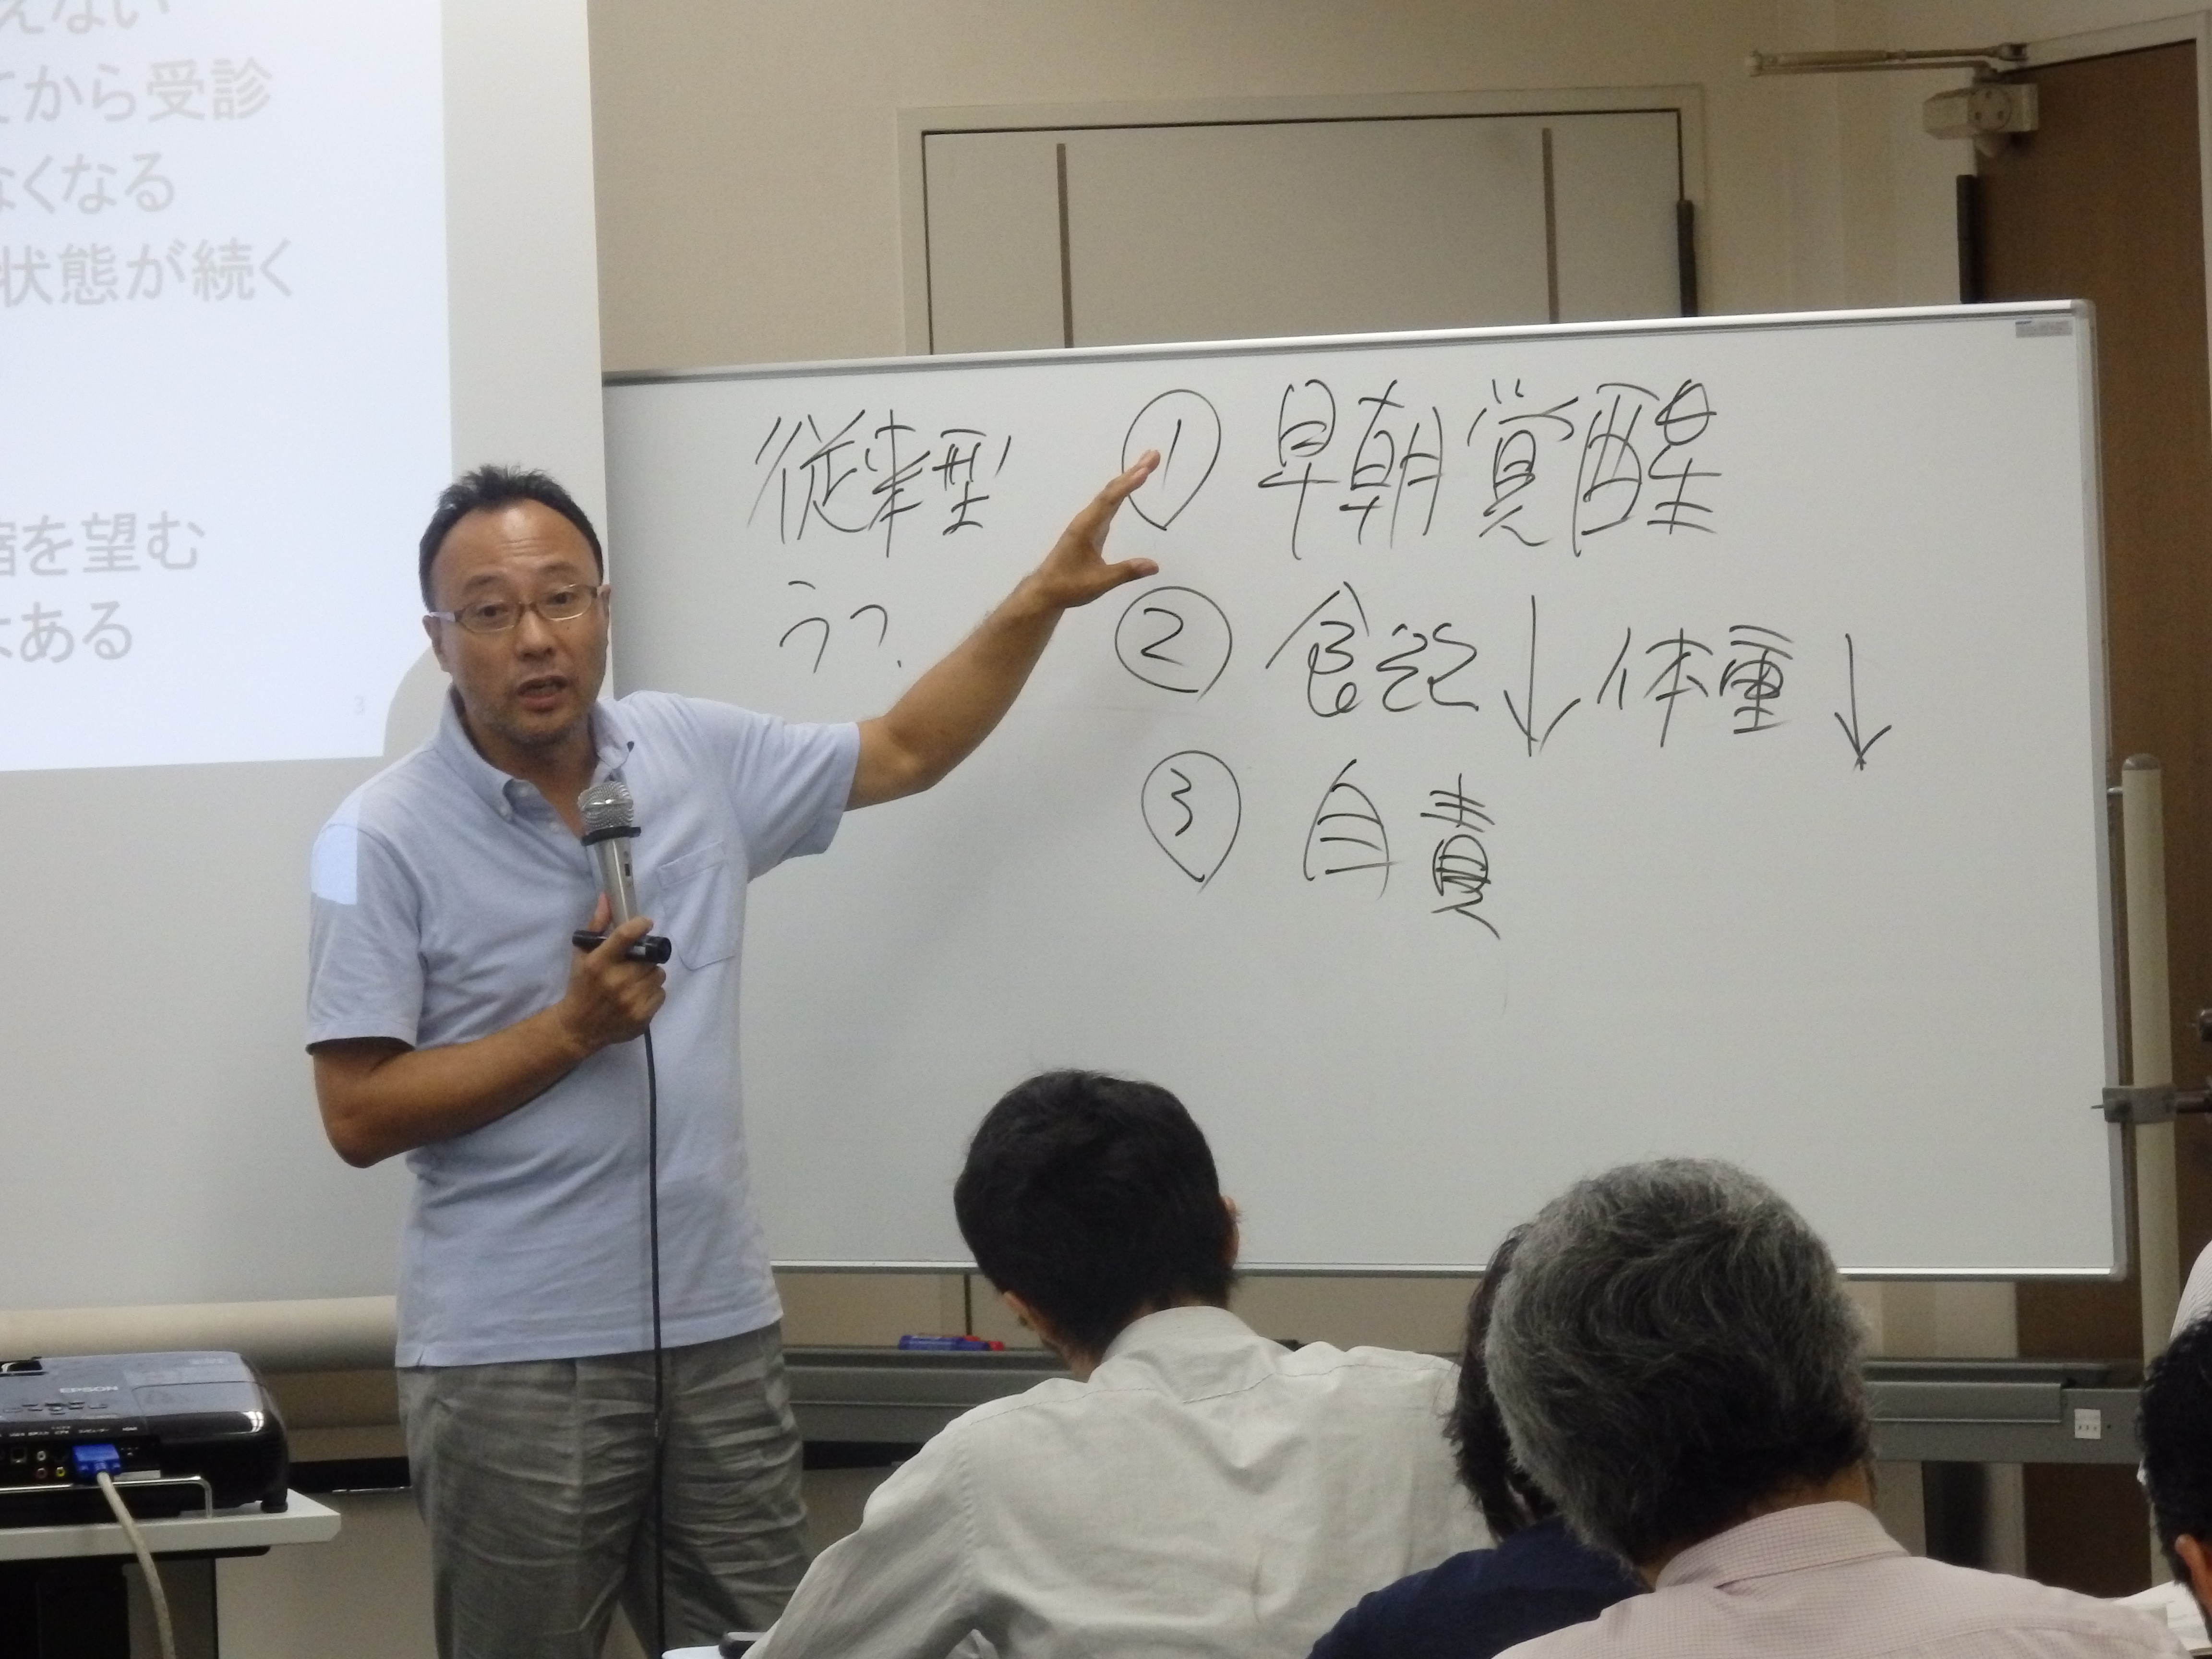 えない
てから受診
なくなる
状態が続く
縮を望む
はある
3
従来型
うつ
① 早朝覚醒
② 食欲↓ 体重↓
③ 自責
EPSON